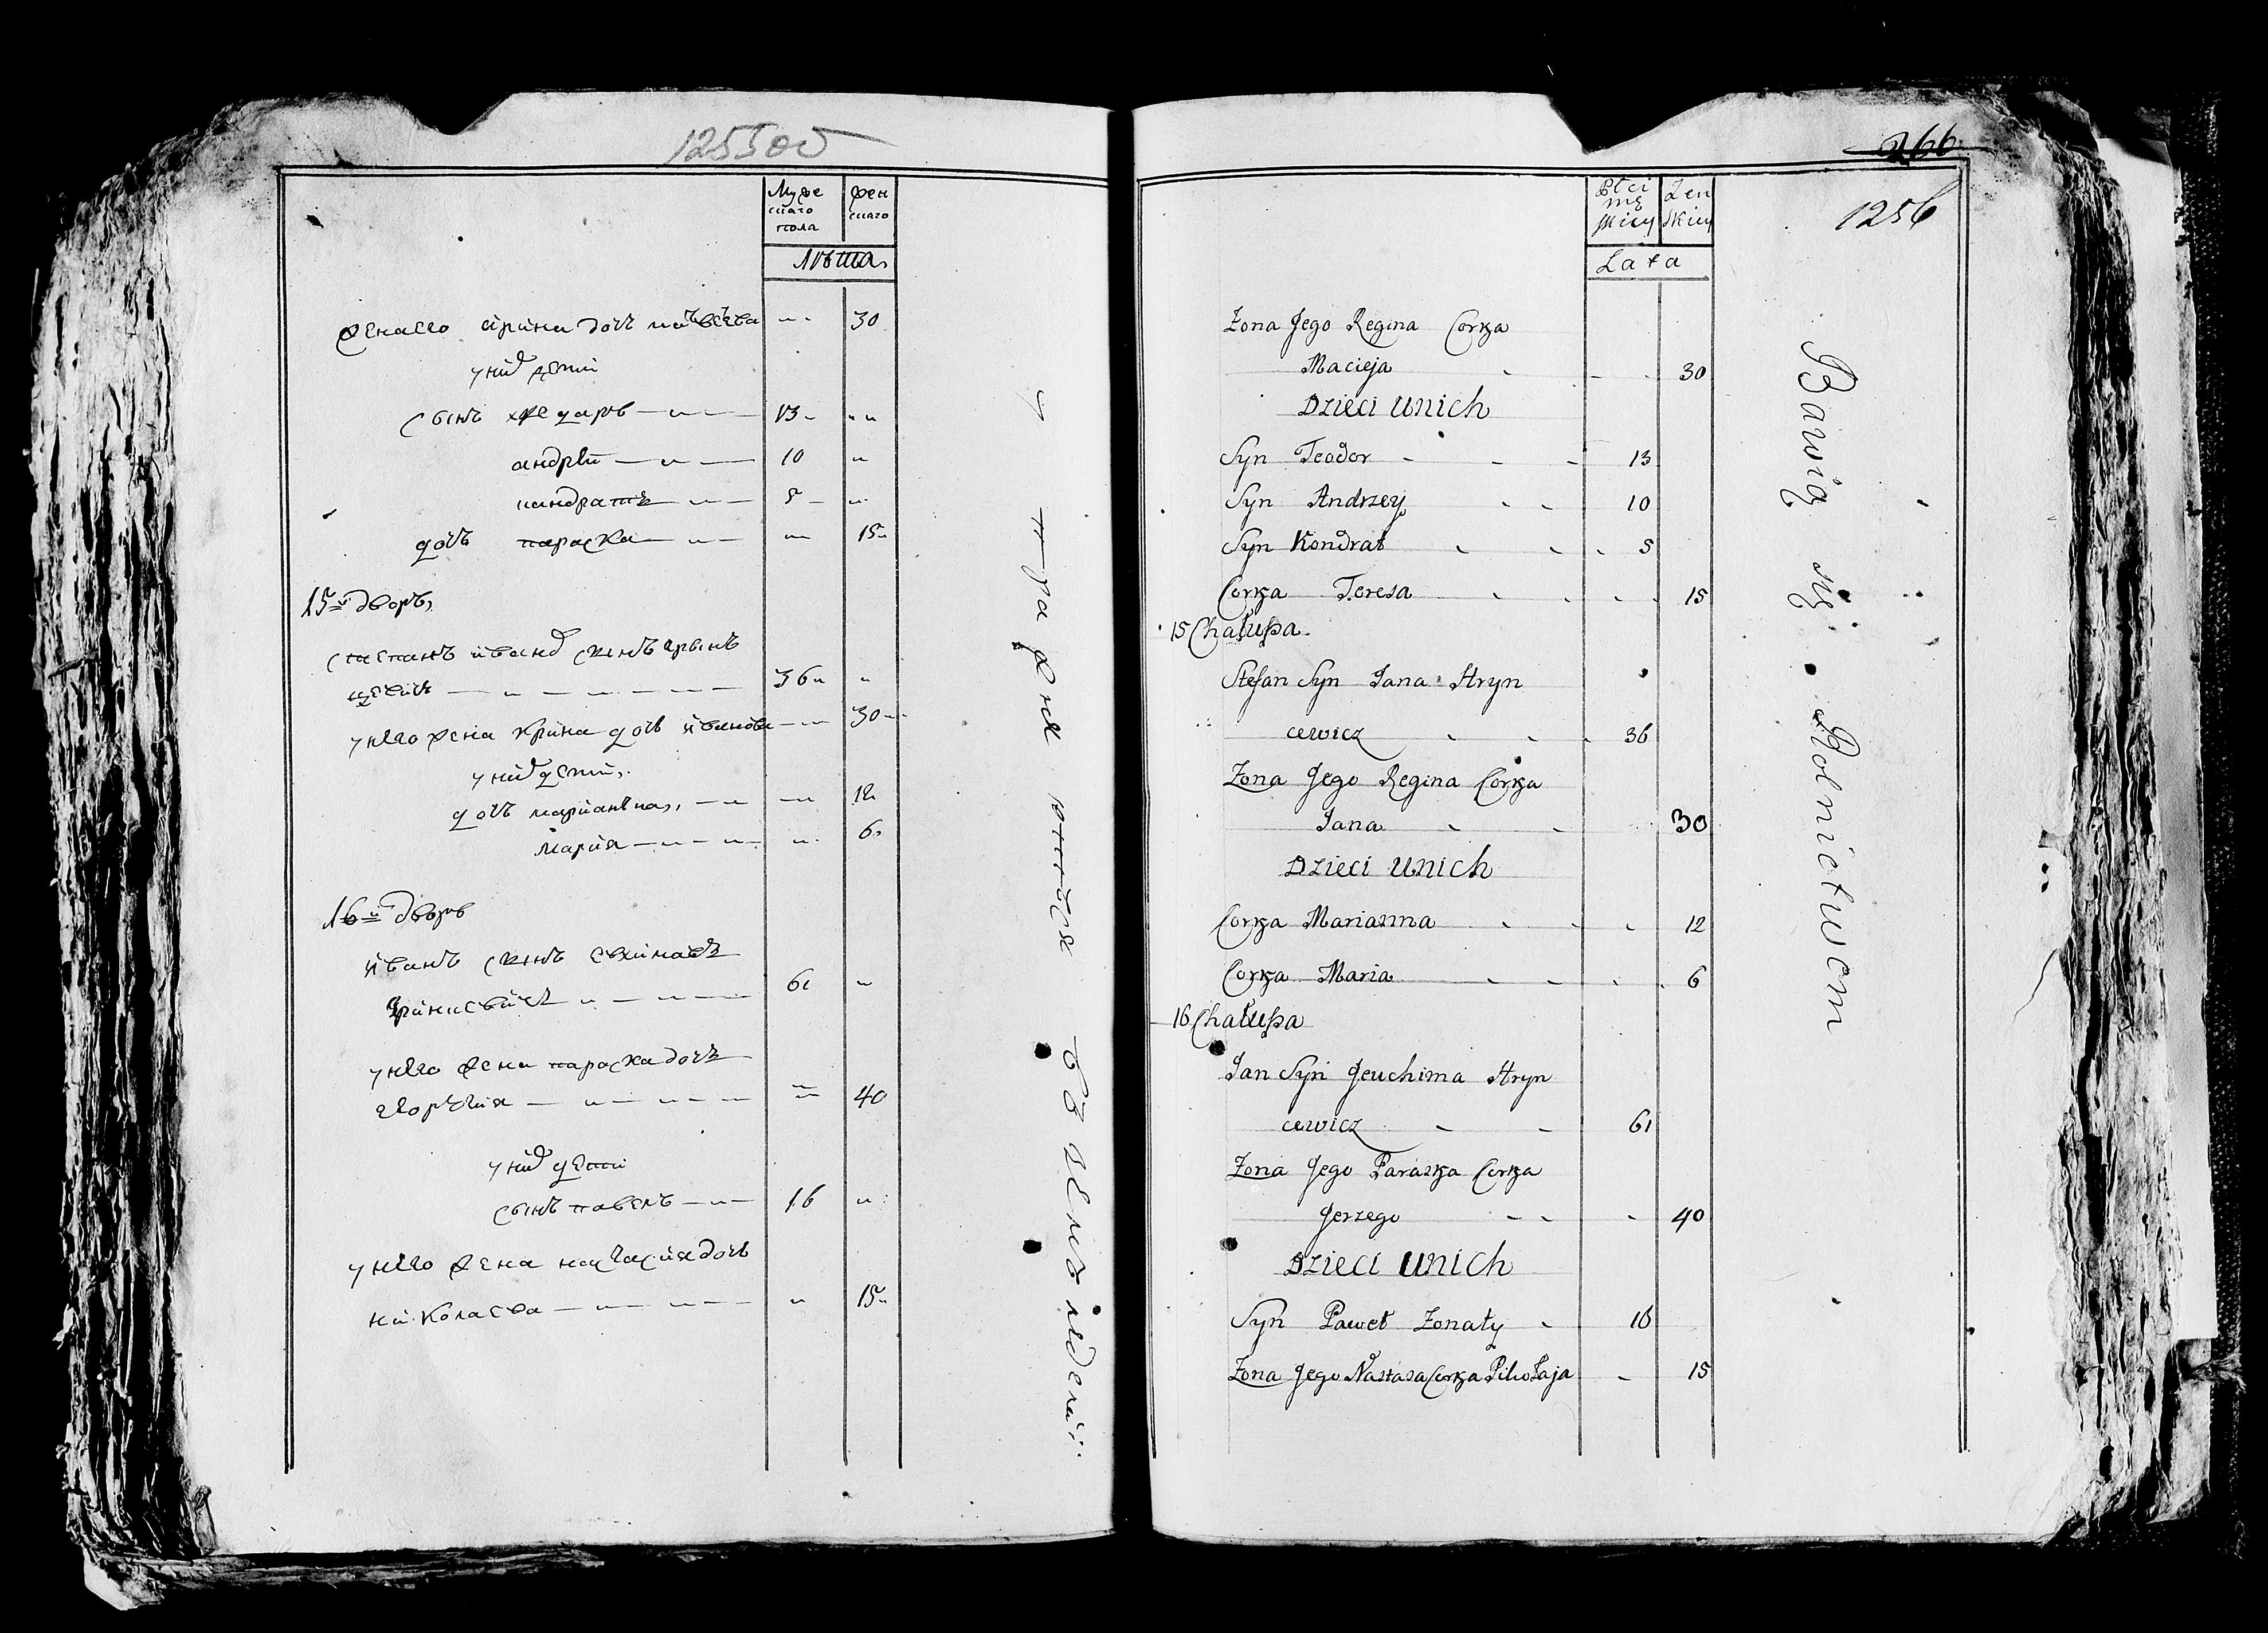 1255 об
Муже
скаго
пола
жен
скаго
лѣта
жена его ирина дочь матвѣева - 30
у них дети
сынъ хведаръ 13
андрей 10
кандратъ 5
дочь параска 15
15й дворъ
степанъ иванов сынъ грынь
цевичь 36
у него жена крина дочь иванова 30
у них дети
дочь марианна 12
мария 6
16й дворъ
иванъ сынъ евхима
гринцевичъ 61
у него жена параска дочь
40
у них дети
сынъ павелъ 16
у него жена настасия дочь
николаева 15
упражняются въ земледелии
266
1256
Płci
mę
skiey
Żen
skiey
Lata
Zona Jego Regina Corka
Macieja 30
Dzieci unich
Syn Teodor 13
Syn Andrzey 10
Syn Kondrat 5
Corka Teresa 15
15 Chałupa
Stefan Syn Jana Hryn
cewicz 36
Zona Jego Regina Corka
Jana 30
Dzieci unich
Corka Marianna 12
Corka Maria 6
16 Chałupa
Jan Syn Jeuchima Hryn
cewicz 61
Zona Jego Paraska Corka
Jerzego 40
Dzieci unich
Syn Paweł Zonaty 16
Zona Jego Nastasa Corka 15
Bawią się Rolnictwem